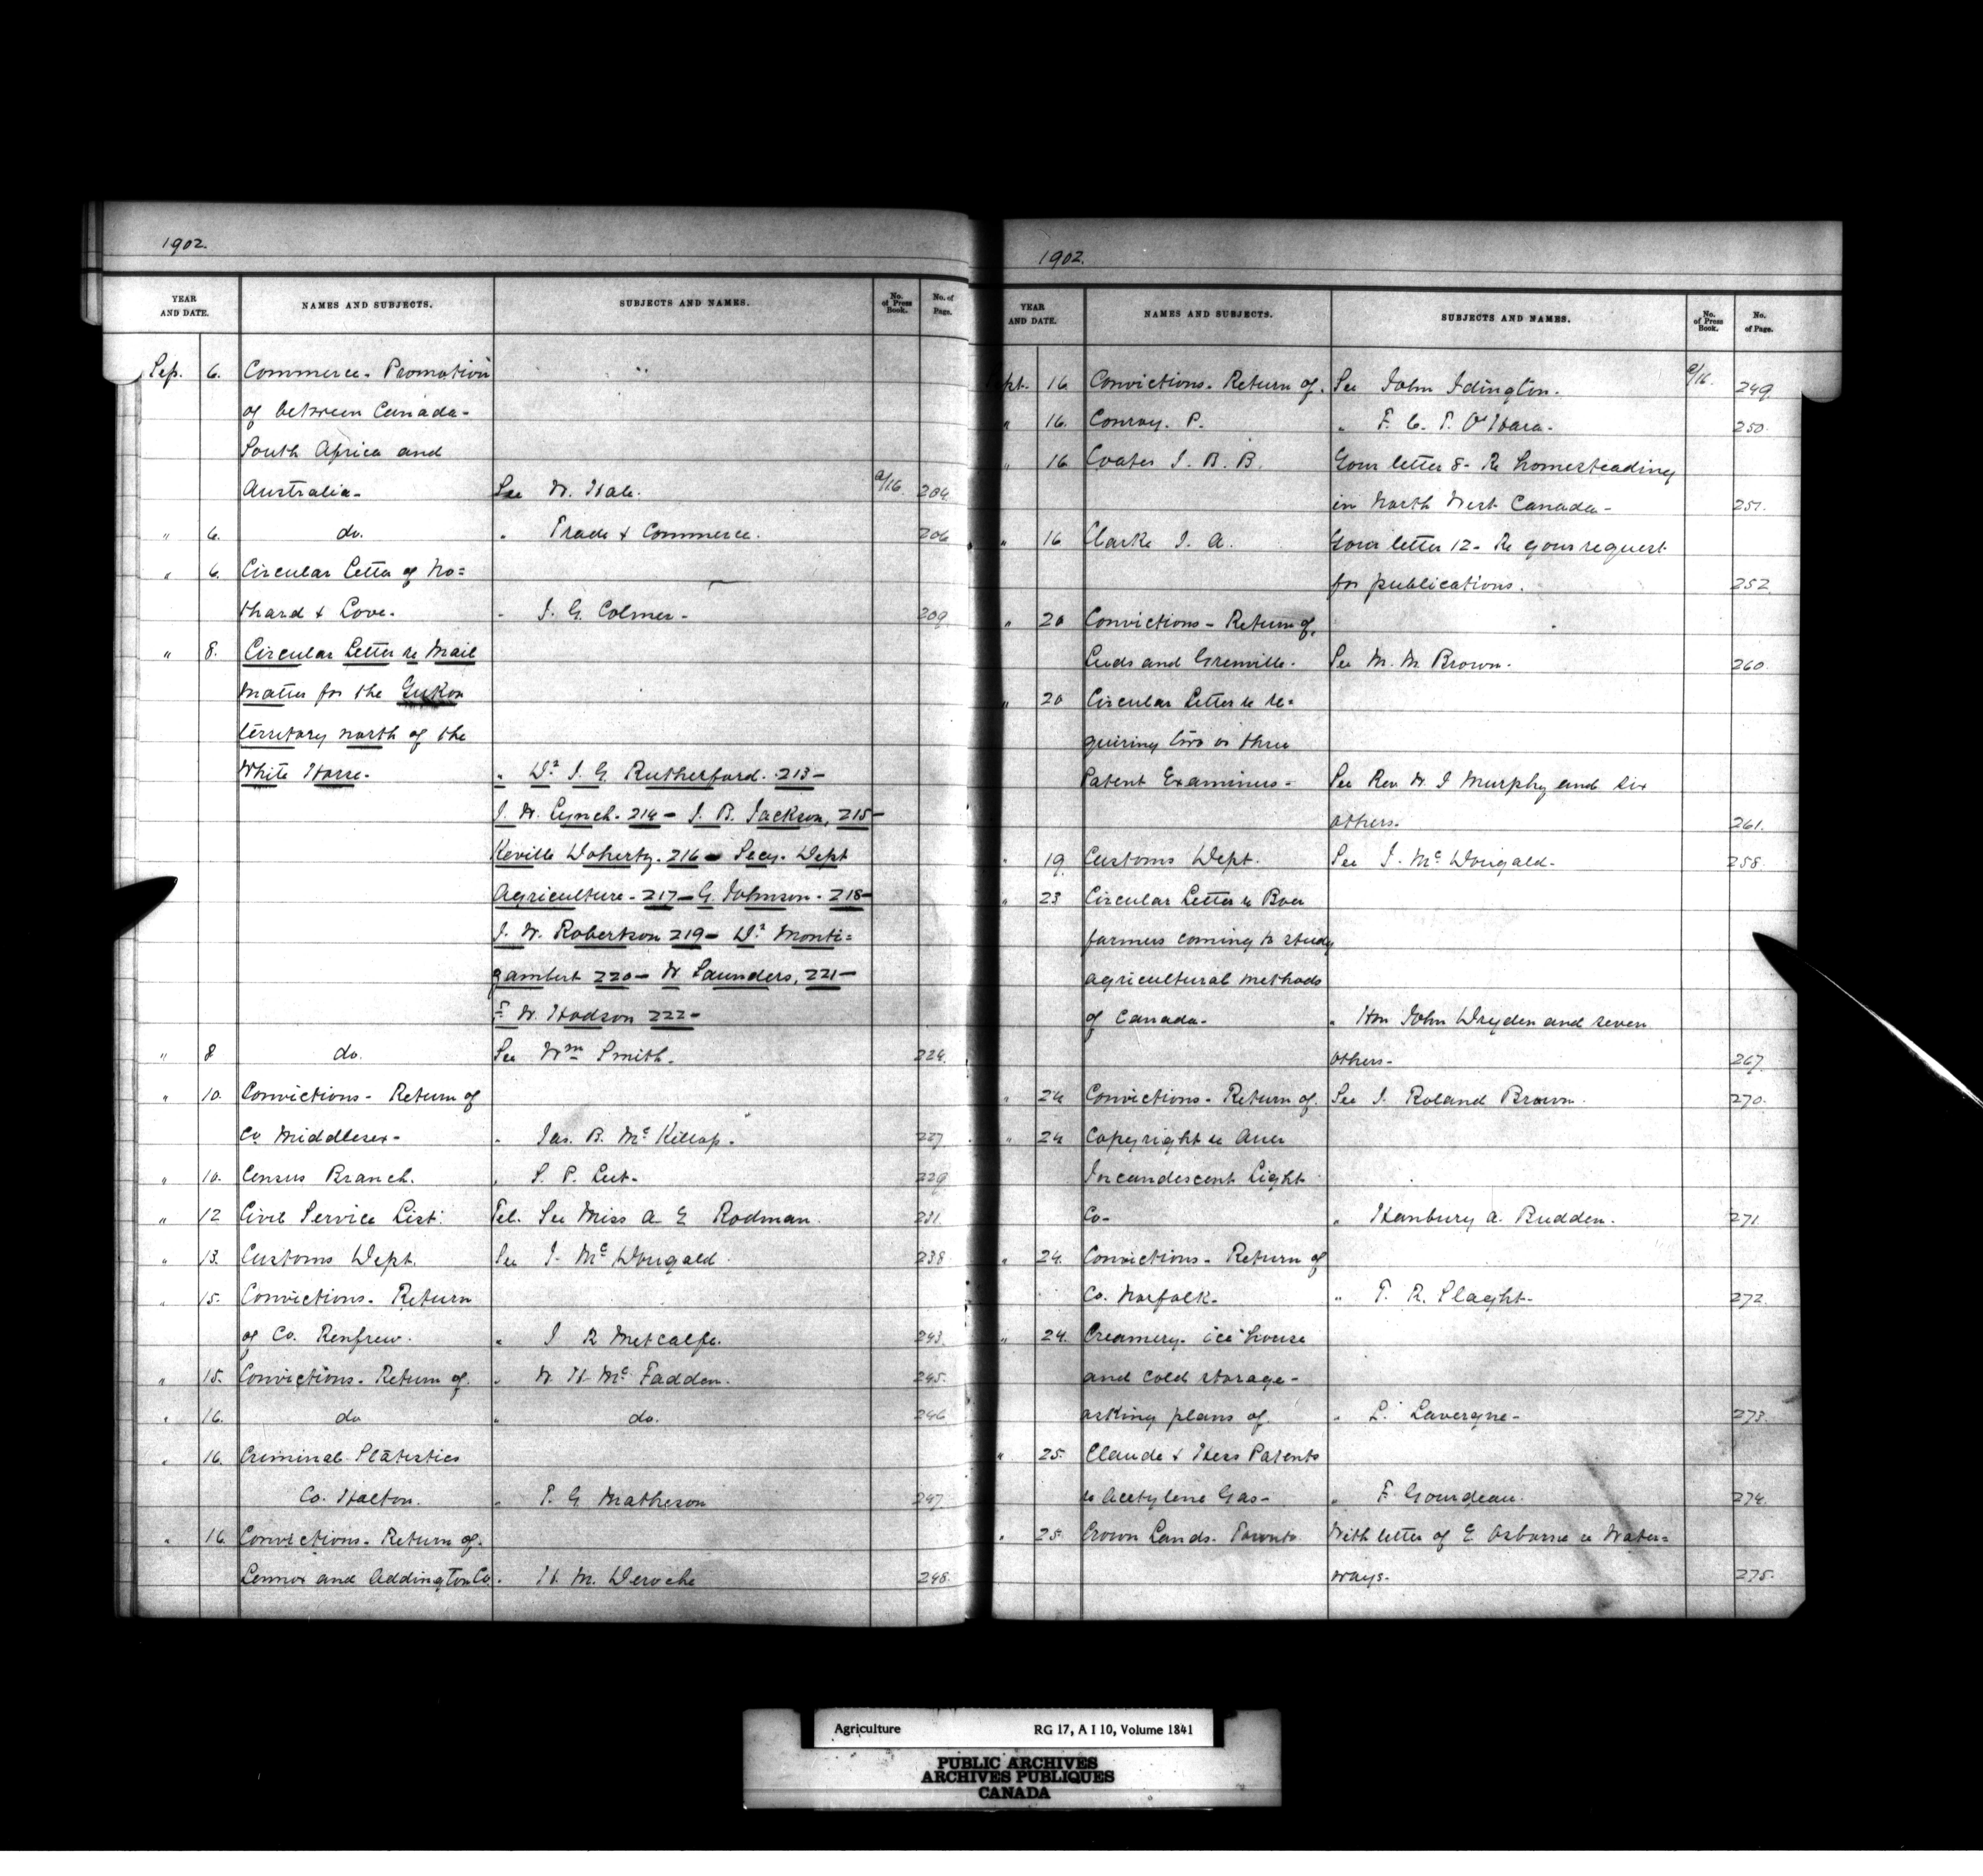 1902.
YEAR AND DATE. NAMES AND SUBJECTS. SUBJECTS AND NAMES. No. of Press Book. No. of Page.
Sep. 6. Commerce - Promotion "
of between Canada -
South Africa and
Australia - See W. Hale. 9/16. 204
" 6. do. " Trade & Commerce. 206
" 6. Circular Letter of No=
thard & Love. " J. G. Colmer - 209
" 8. Circular Letter re Mail
matter for the Yukon
territory north of the
White Horse. " Dr J. G. Rutherford. 213 -
J. W. Lynch. 214 - J. B. Jackson, 215 -
Keville Doherty. 216 - Secy. Dept
Agriculture - 217 - G. Johnson - 218 -
J. W. Robertson 219 - Dr Monti=
gambert 220 - W Saunders, 221 -
F. W. Hodson 222 -
" 8 do. See Wm Smith. 224.
" 10. Convictions - Return of
Co Middlesex - " Jas. B. McKillop. 227
" 10. Census Branch. " S. P. Leet. 229
" 12 Civil Service List. Tel. See Miss A E Rodman. 231.
" 13. Customs Dept. See J. McDougald. 238
" 15. Convictions - Return
of Co. Renfrew. " J R Metcalfe. 243.
" 15. Convictions - Return of. " W. H. McFadden. 245.
" 16. do " do. 246
" 16. Criminal Statistics
Co. Halton. " T. G Matheson 247
" 16 Convictions - Return of.
Lennox and Addington Co. " H. M. Deroche 248.
1902.
YEAR AND DATE. NAMES AND SUBJECTS. SUBJECTS AND NAMES. No. of Press Book. No. of Page.
Sept. 16 Convictions - Return of. See John Idington. 9/16. 249
" 16. Conroy. P. " F. C. T. O'Hara. 250.
" 16 Coates J. B. B. Your letter 8 - Re homesteading
in North West Canada - 251.
" 16 Clarke J. A. Your letter 12 - Re your request
for publications. 252
" 20 Convictions - Return of.
Leeds and Grenville. See M. M. Brown. 260.
" 20 Circular Letter re re-
quiring two or three
Patent Examiners - See Rev. W. J Murphy and six
others. 261.
" 19. Customs Dept. See J. McDougald - 258.
" 23 Circular Letter re Boer
farmers coming to study
agricultural methods
of Canada - " Hon John Dryden and seven
others - 267.
" 24 Convictions - Return of. See J. Roland Brown. 270.
" 24 Copyright re Auer
Incandescent Light
Co - " Hanbury A. Budden. 271.
" 24. Convictions - Return of
Co. Norfolk. " T. R. Slaght. 272.
" 24. Creamery - ice house
and cold storage -
asking plans of " L. Lavergne - 273.
" 25. Claude & Hess Patents
re Acetylene Gas - " F Gourdeau. 274.
" 25. Crown Lands. Toronto With letter of E Osborne re Water=
ways. 275.
Agriculture RG 17, A I 10, Volume 1841
PUBLIC ARCHIVES
ARCHIVES PUBLIQUES
CANADA